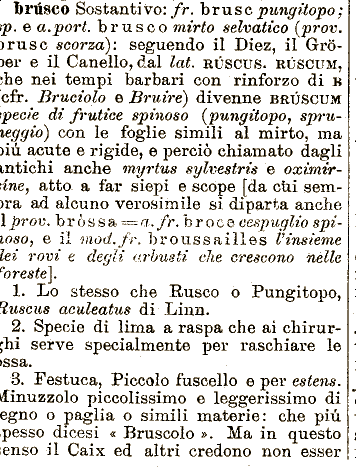 brúsco Sostantivo: fr. brusc pungitopo;
sp. e a. port. brusco mirto selvatico (prov.
brusc scorza): seguendo il Diez, il Grö-
ber e il Canello, dal lat. RÚSCUS. RÚSCUM,
che nei tempi barbari con rinforzo di B
(cfr. Bruciolo e Bruire) divenne BRÚSCUM
specie di frutice spinoso (pungitopo, spru-
neggio) con le foglie simili al mirto, ma
più acute e rigide, e perciò chiamato dagli
antichi anche myrtus sylvestris e oximir-
sine, atto a far siepi e scope [da cui sem-
bra ad alcuno verosimile si diparta anche
il prov. bròssa = a. fr. broce cespuglio spi-
noso, e il mod. fr. broussailles l'insieme
dei rovi e degli arbusti che crescono nelle
foreste].
1. Lo stesso che Rusco o Pungitopo,
Ruscus aculeatus di Linn.
2. Specie di lima a raspa che ai chirur-
ghi serve specialmente per raschiare le
ossa.
3. Festuca, Piccolo fuscello e per estens.
Minuzzolo piccolissimo e leggerissimo di
legno o paglia o simili materie: che più
spesso dicesi « Bruscolo ». Ma in questo
senso il Caix ed altri credono non esser